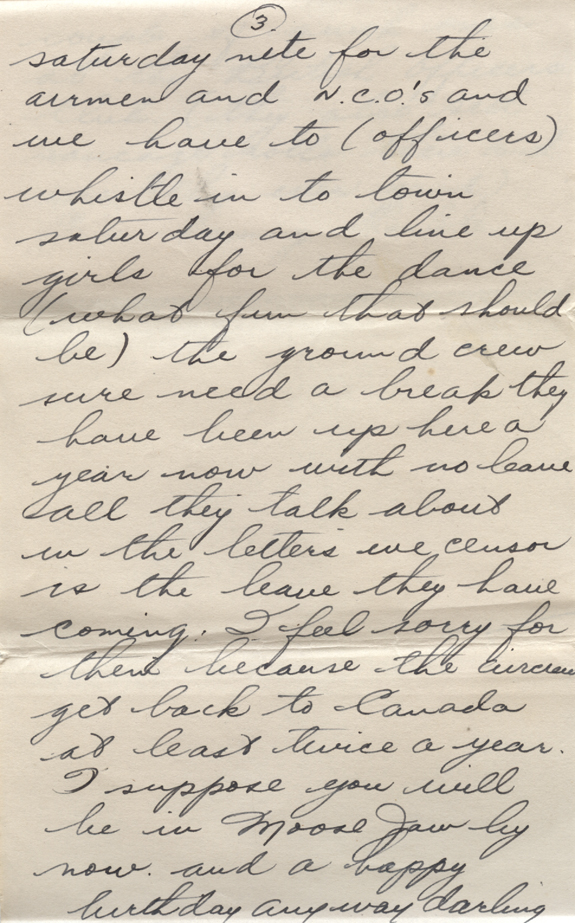 3
saturday nite for the
airmen and N.C.O.'s and
we have to (officers)
whistle in to town
saturday and line up
girls for the dance
(what fun that should
be) the ground crew
sure need a break they
have been up here a
year now with no leave
all they talk about
in the letters we censor
is the leave they have
coming. I feel sorry for
them because the aircrew
get back to Canada
at least twice a year.
I suppose you will
be in Moose Jaw by
now. and a happy
birthday anyway darling